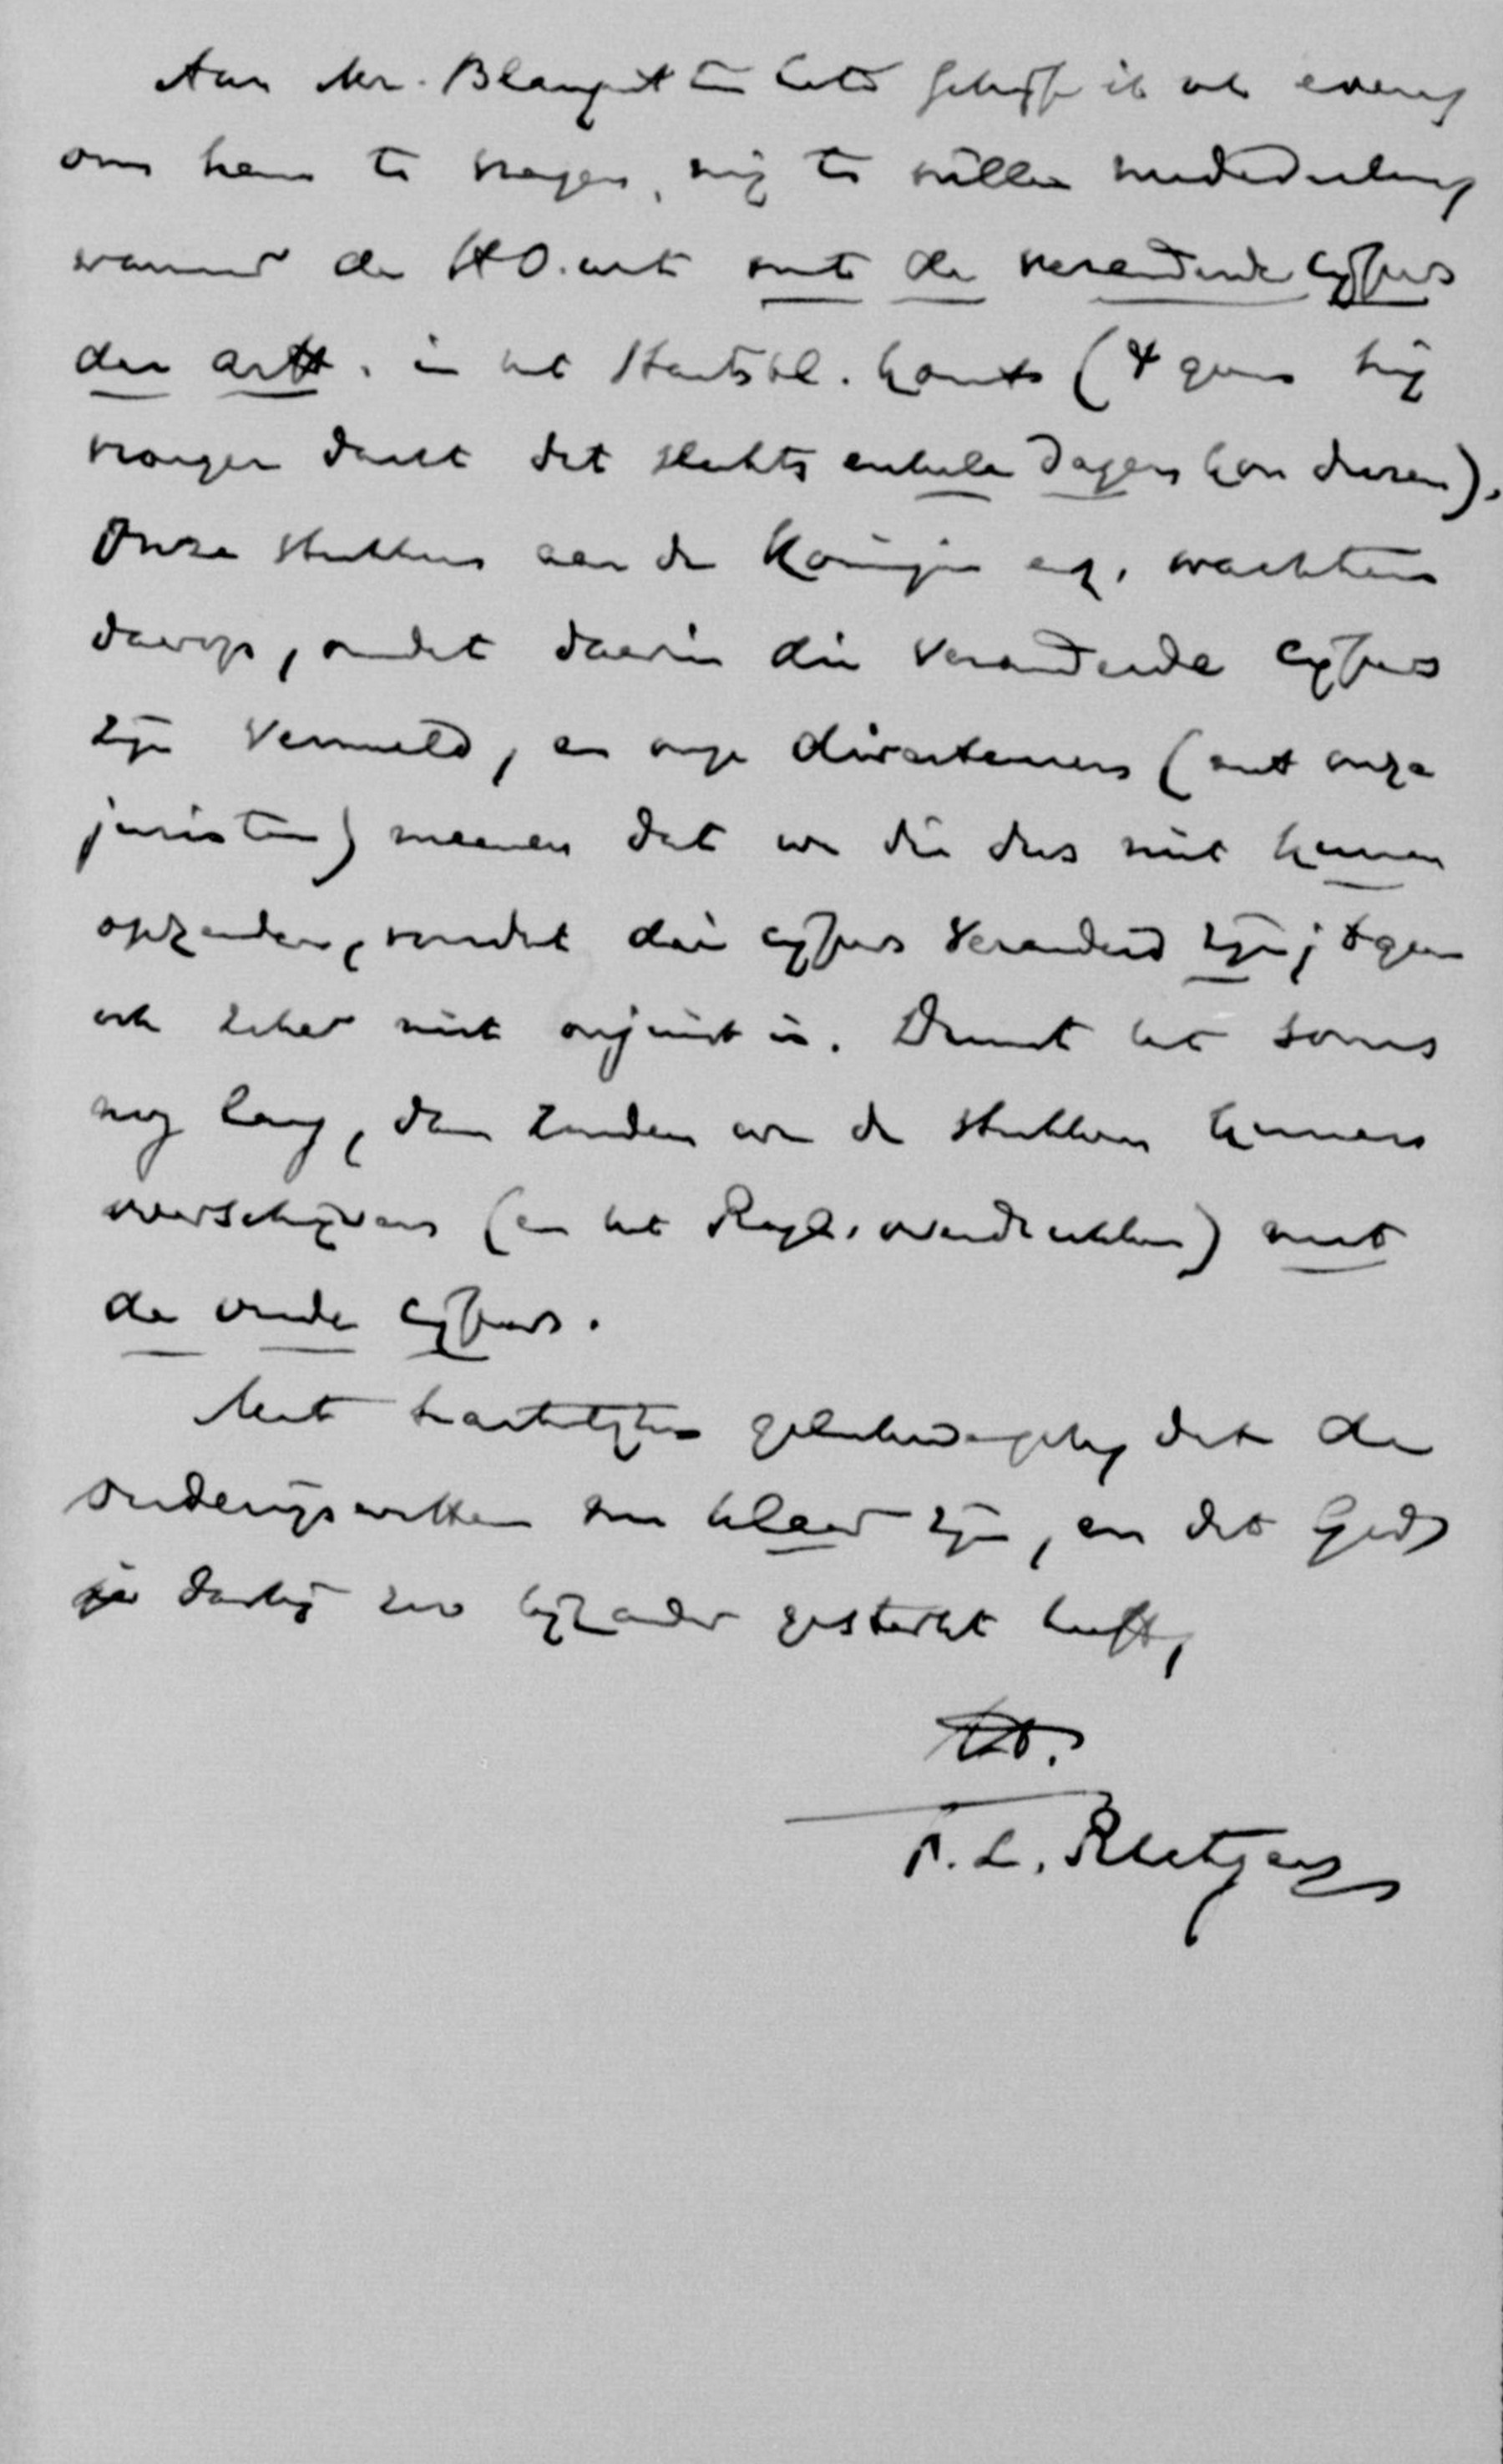 Aan Mr. Blaupot ten Cate schrijf ik ook even,
om hem te vragen, mij te willen mededeelen,
wanneer de HO.wet met de veranderde cijfers
der artt. in het Staatsbl. komt ( 't geen hij
vroeger dacht dat slechts enkele dagen kon duren).
Onze stukken aan de Koningin enz. wachten
daarop, omdat daarin die veranderde cijfers
zijn vermeld, en onze directeuren (met onze
juristen) meenen dat we die dus niet kunnen
opzenden, voordat die cijfers veranderd zijn; 't geen
ook zeker niet onjuist is. Duurt het soms
nog lang, dan zouden we de stukken kunnen
overschrijven (en het Regl. overdrukken) met
de oude cijfers.
Met hartelijken gelukwensch, dat de
onderwijswetten nu klaar zijn, en dat God
je daarbij zoo bijzonder gesterkt heeft,
tt.
F. L. Rutgers